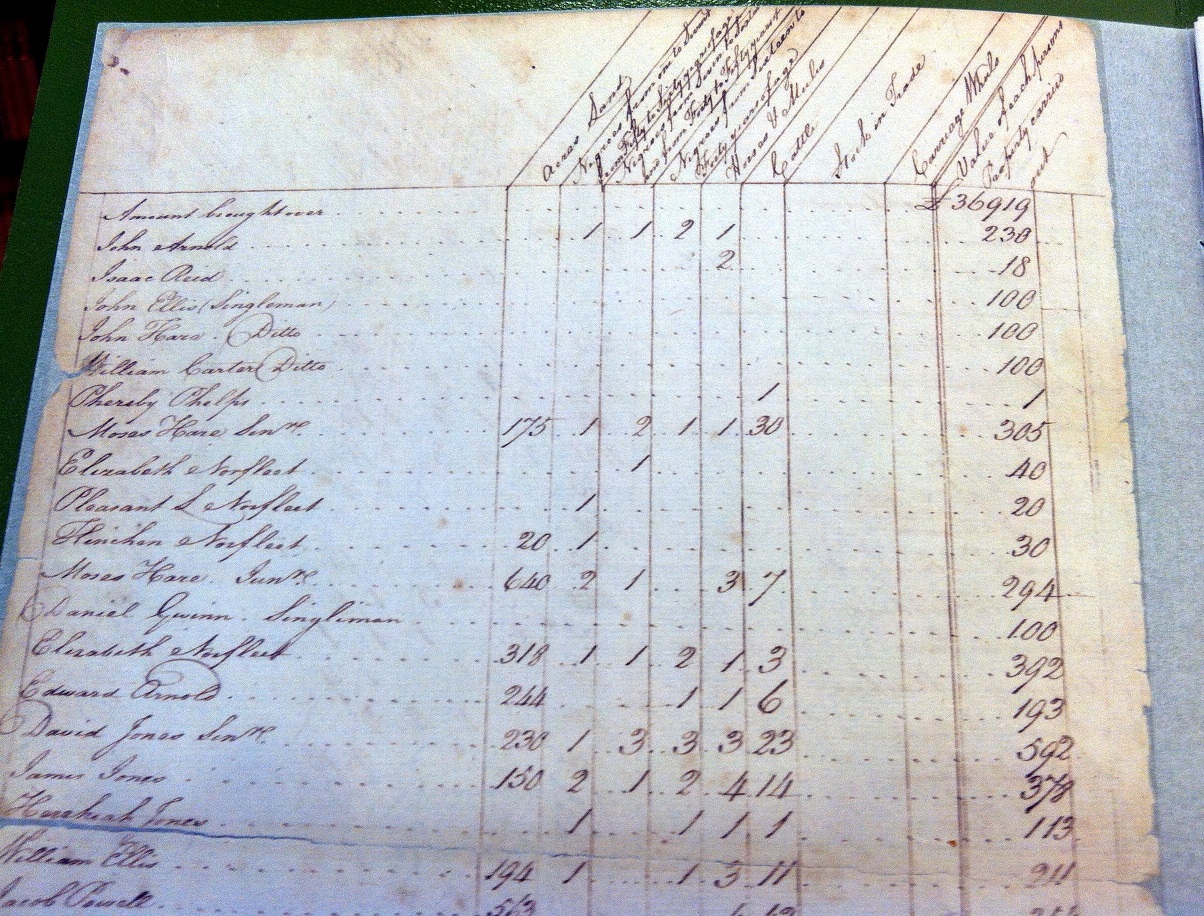 Acres Land
Negroes from one to Seven &
from Fifty to Sixty years of age
Negroes from Seven to
and from Forty to Fifty years
Negroes from Sixteen to
Forty years of age
Horses & Mules
Cattle
Stock in Trade
Carriage Wheels
Value of each persons
Property carried
out
Amount brought over £ 36919
John Arnold 1 1 2 1 230
Isaac Reed 2 18
John Ellis (Singleman) 100
John Hare Ditto 100
William Carter Ditto 100
Phereby Phelps 1 1
Moses Hare Senr. 175 1 2 1 1 30 305
Elizabeth Norfleet 1 40
Pleasant L Norfleet 1 20
Hinchen Norfleet 20 1 30
Moses Hare Junr. 640 2 1 3 7 294
Daniel Gwinn Singleman 100
Elizabeth Norfleet 318 1 1 2 1 3 392
Edward Arnold 244 1 1 6 193
David Jones Senr. 230 1 3 3 3 23 592
James Jones 150 2 1 2 4 14 378
Hezekiah Jones 1 1 1 1 113
William Ellis 194 1 1 3 11 211
Jacob Powell 563